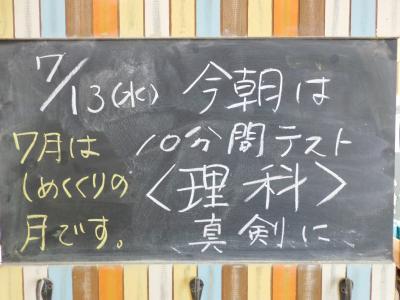 7/13(水) 今朝は
10分間テスト
〈理科〉
真剣に
7月は
しめくくりの
月です。